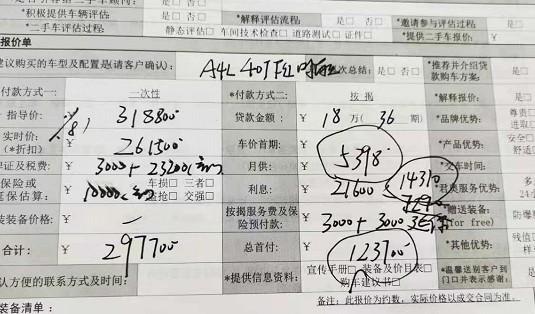 *积极提供车辆评估: 是□否□ *解释评估流程: 是□否□ *邀请参与评估过程: 是□
*二手车评估过程: 静态评估□ 车间技术检查□ 道路测试□ 证件□ *提供二手车报价: 是□
报价单
建议购买的车型及配置是(请客户确认): A4L 40T 次总结: 是□否□ *推荐并介绍贷款购车方案: 是□
付款方式一: 一次性 *付款方式二: 按揭 *解释报价: 是□
指导价: ¥ 318800 贷款金额: ¥ 18 万( 36 期) *品牌优势: 尊贵□ 进取□
实时价: (*折扣) ¥ 261500 车价首期: ¥ *产品优势: 安全□ 舒适□
证及税费: ¥ 3000+23200 月供: ¥ 5398 *交车时间:
保险或延保估算: ¥ 10000 车损□ 三者□ 盗抢□ 交强□ 利息: ¥ 21600 14310 服务优势:
装装备价格: ¥ 一 按揭服务费及保险预付款: ¥ 3000+3000 *赠送装备: (for free)
合计: ¥ 297700 总首付: ¥ 123700 *其他优势:
认方便的联系方式及时间: *提供信息资料: 宣传手册□ 装备及价目表□ 购车建议书□ *温馨送别客户到门口并表示感谢:
备注:此报价为约数,实际价格以成交合同为准。
装备清单: